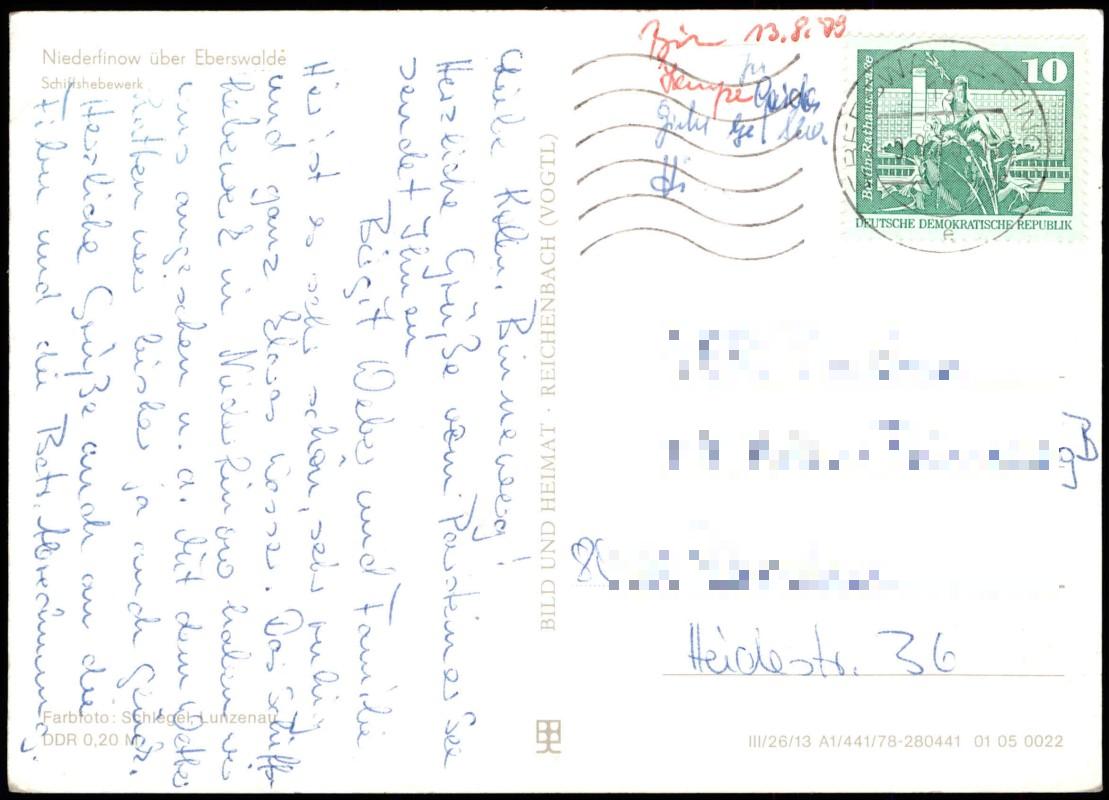 Niederfinow über Eberswalde
Schiffshebewerk
Liebe Kolln. Binneweg!
Herzliche Grüße vom Parsteiner See
sendet Ihnen
Birgit Weber und Familie
Hier ist es sehr schön, sehr ruhig
und ganz klares Wasser. Das Schiffs-
hebewerk in Niederfinow haben wir
uns angesehen u. a. Mit dem Wetter
hatten wir bisher ja auch Glück.
Herzliche Grüße auch an die
Fibu und die Betr. Abrechnung.
Farbfoto: Schlegel, Lunzenau
DDR 0,20 M
BILD UND HEIMAT · REICHENBACH (VOGTL)
13.8.79
10
Berlin-Rathausstraße
DEUTSCHE DEMOKRATISCHE REPUBLIK
Heidestr. 36
III/26/13 A1/441/78-280441 01 05 0022